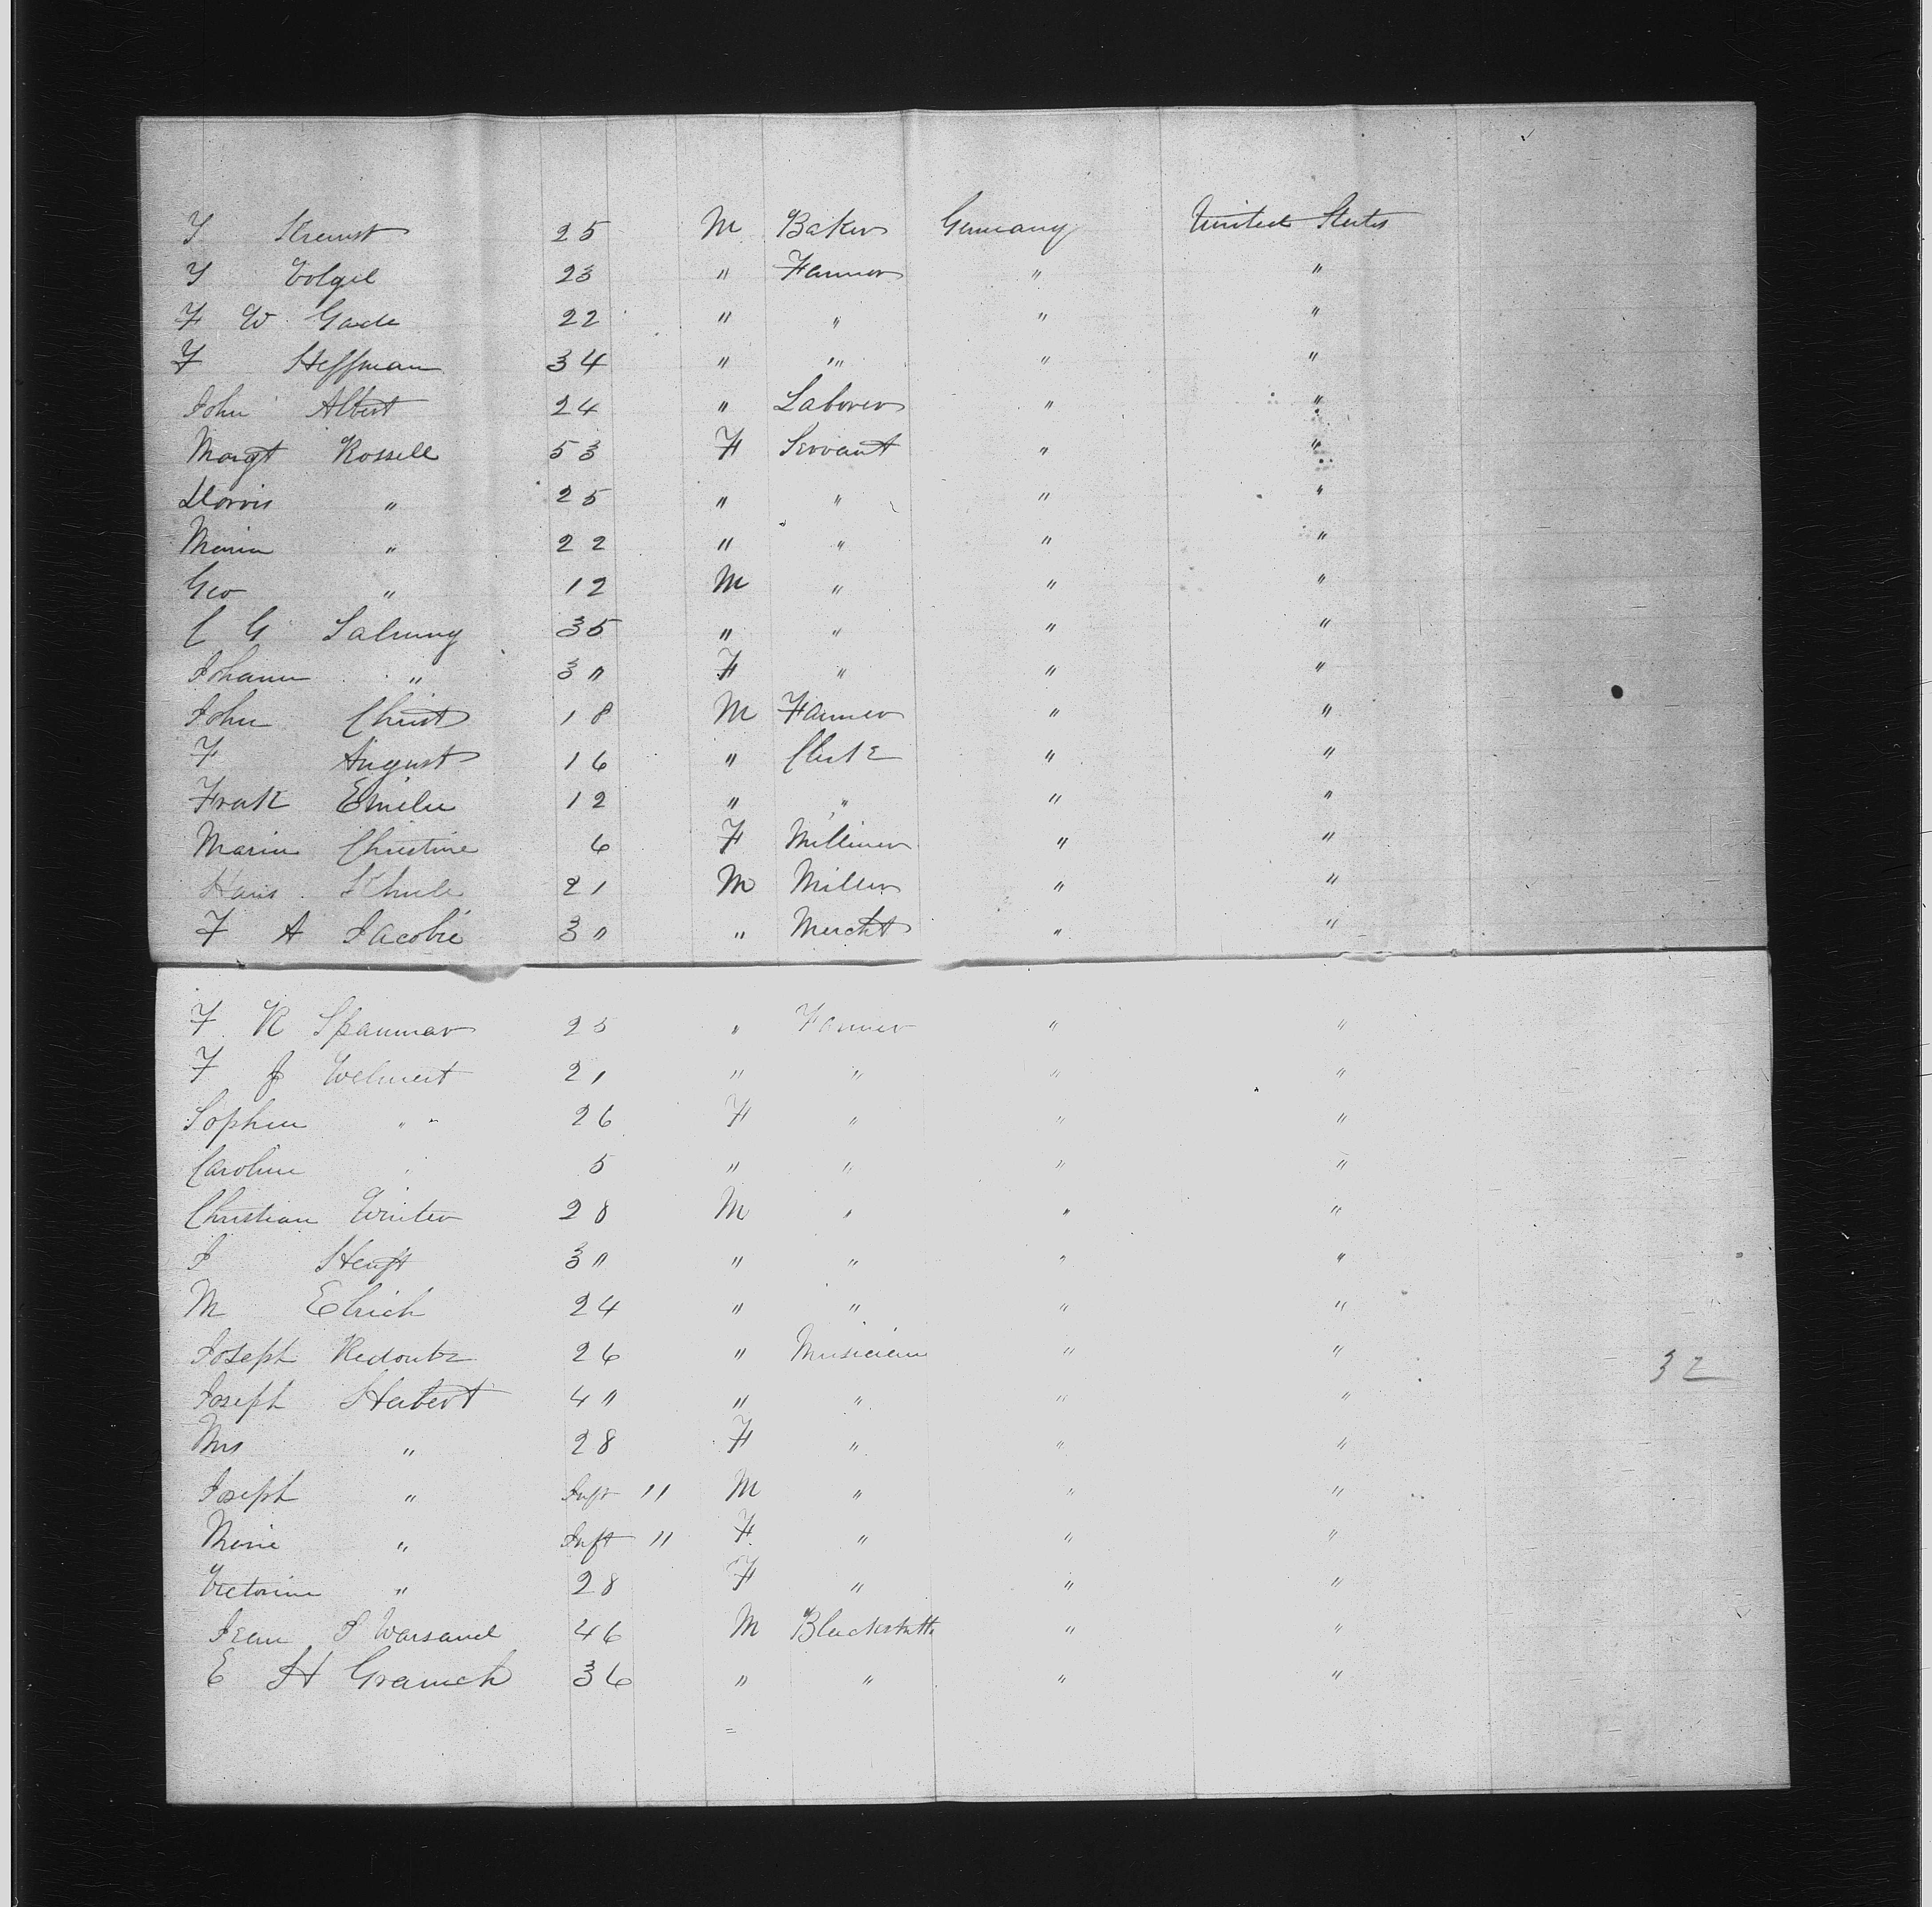 Y Kremst 25 M Baker Germany United States
Y Volgel 23 " Farmer " "
F W Gade 22 " " " "
F Heffman 34 " " " "
John Albert 24 " Laborer " "
Margt Rossell 53 F Servant " "
Dorris " 25 " " " "
Maria " 22 " " " "
Geo " 12 M " " "
C G Salmung 35 " " " "
Johann " 30 F " " "
John Christ 18 M Farmer " "
F August 16 " Clerk " "
Frak Emilie 12 " " " "
Marin Christine 6 F Milliner " "
Hans 21 M Miller " "
F A Jacobie 30 " Mercht " "
F R Spanmar 25 " Farmer " "
F J Welmert 21 " " " "
Sophie " " 26 F " " "
Caroline " 5 " " " "
Christian Winter 28 M " " "
J Henft 30 " " " "
M Elrich 24 " " " "
Joseph Redoutz 26 " Musician " "
Joseph Habert 40 " " " "
Mrs " 28 F " " "
Joseph " Inft 11 M " " "
Marie " Inft 11 F " " "
Victorine " 28 F " " "
Jean P Warsand 46 M Blacksmith " "
E H Gramch 36 " " " "
32